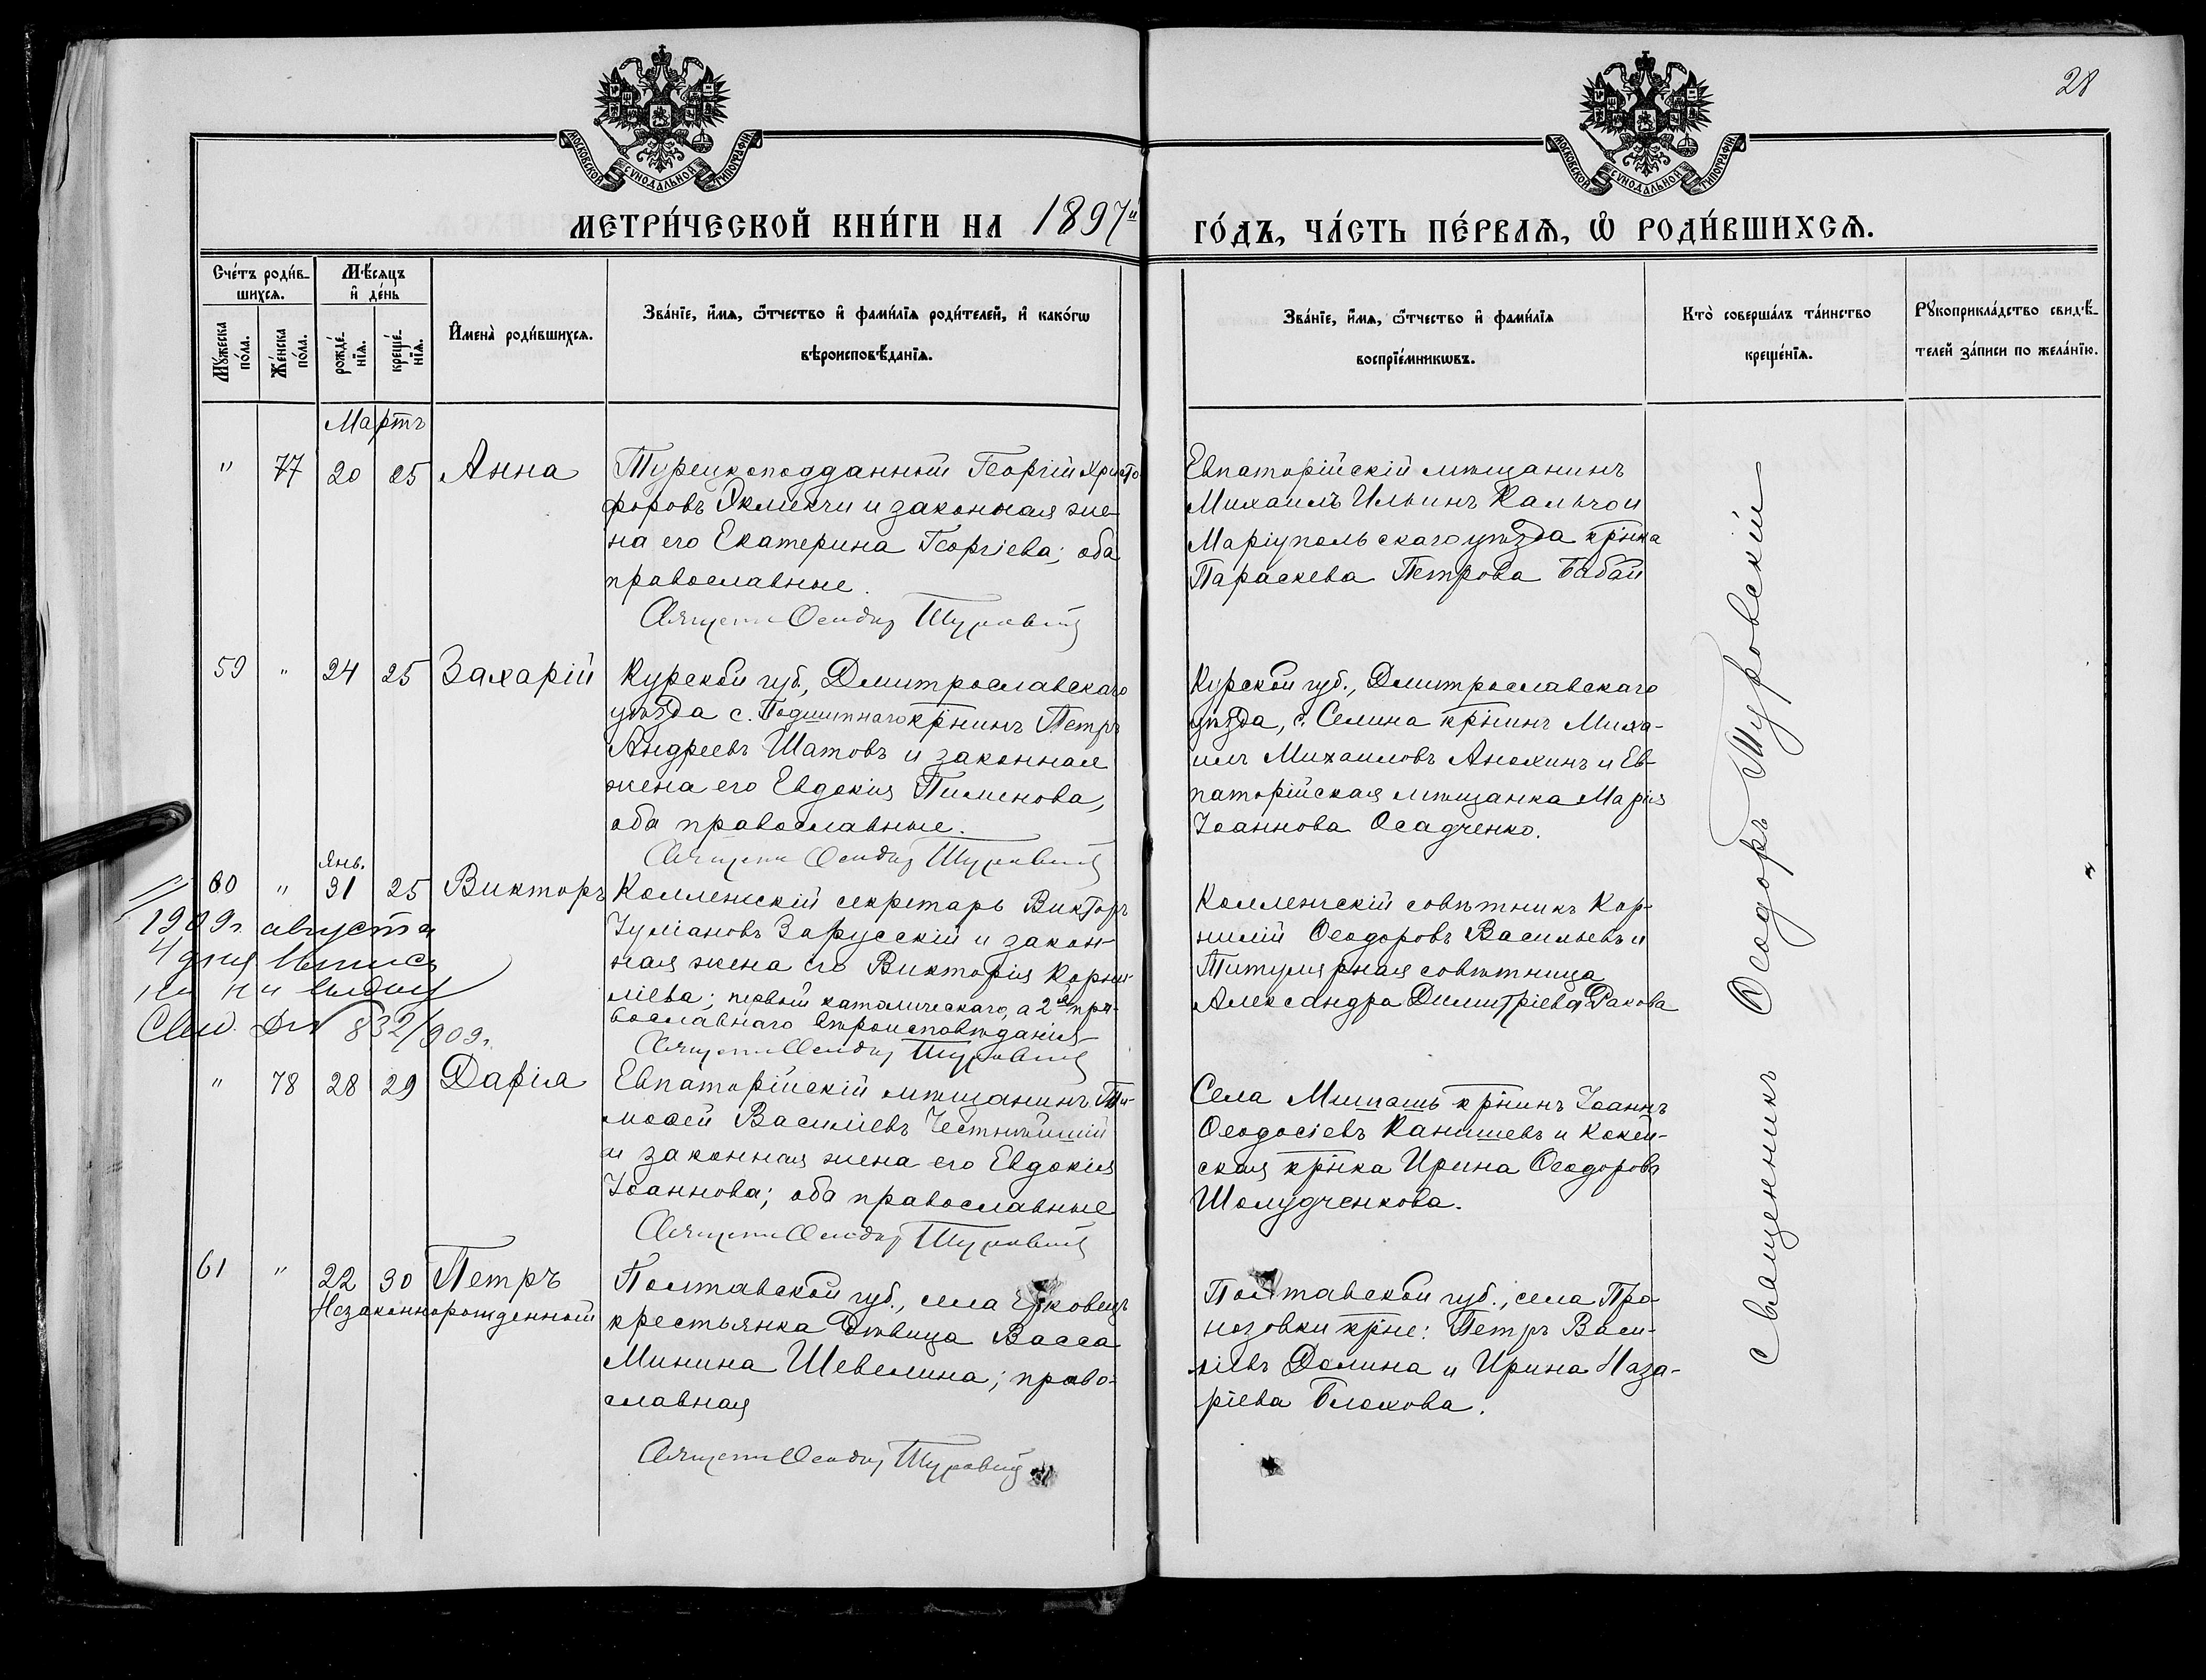 28
МОСКОВСКОЙ СѴНОДАЛЬНОЙ ТИПОГРАФІИ
МОСКОВСКОЙ СѴНОДАЛЬНОЙ ТИПОГРАФІИ
МЕТРИ́ЧЕСКОЙ КНИ́ГИ НА 1897й ГО́ДЪ, ЧА́СТЬ ПЕ́РВАѦ, Ѽ РОДИ́ВШИХСѦ.
Сче́тъ роди́в-
шихсѧ.
Мꙋжеска
по́ла.
Же́нска
по́ла.
Мѣ́сѧцъ
и҆ де́нь
рожде́-
нїѧ.
креще́-
нїѧ.
И҆мена̀ роди́вшихсѧ.
Зва́нїе, и҆́мѧ, ѻ҆́тчество и҆ фами́лїѧ роди́телей, и҆ како́гѡ
вѣроисповѣ́данїѧ.
Зва́нїе, и҆́мѧ, ѻ҆́тчество и҆ фами́лїѧ
воспрїе́мникѡвъ.
Кто̀ соверша́лъ та́инство
креще́нїѧ.
Рꙋкоприкла́дство свидѣ́-
телей за́писи по жела́нїю.
Мартъ
" 77 20 25 Анна
Турецкоподданный Георгій Христо
форовъ Экмекчи и законная же-
на его Екатерина Георгіева; оба
православные.
Евпаторійскій мѣщанинъ
Михаилъ Ильинъ Кальчои
Маріупольскаго уѣзда крнка
Параскева Петрова Бабаи
59 " 24 25 Захарій
Курской губ., Дмитрославскаго
уѣзда с. крнинъ Петръ
Андреевъ Шатовъ и законная
жена его Евдокія Пименова,
оба православные.
Курской губ., Дмитрославскаго
уѣзда, с. Селина крнинъ Миха-
илъ Михаиловъ Анохинъ и Ев-
паторійская мѣщанка Марія
Іоаннова Осадченко.
Янв.
60 " 31 25 Викторъ
Коллежскій секретарь Викторъ
Іуліановъ Зарусскій и закон-
ная жена его Викторія Корни-
ліева; первый католическаго, а 2я пра-
вославнаго вѣроисповѣданія
Коллежскій совѣтникъ Кор-
нилій Ѳеодоровъ Васильевъ и
Титулярная совѣтница
Александра Димитріева Ракова
1909г. августа
4 дня
832/909г.
" 78 28 29 Дарія
Евпаторійскій мѣщанинъ Ти-
моѳей Василіевъ Честнѣйшій
и законная жена его Евдокія
Іоаннова; оба православные
Села крнинъ Іоаннъ
Ѳеодосіевъ Канишевъ и
ская крнка Ирина Ѳеодоров
Шолудченкова.
61 " 22 30 Петръ
Незаконнорожденный
Полтавской губ., села Ерковецъ
крестьянка дѣвица Васса
Минина Шевелина; право-
славная
Полтавской губ., села Про-
нозовки крне: Петръ Васи-
ліевъ Долина и Ирина Наза-
ріева Блохова.
Священникъ Ѳеодоръ Туровскій